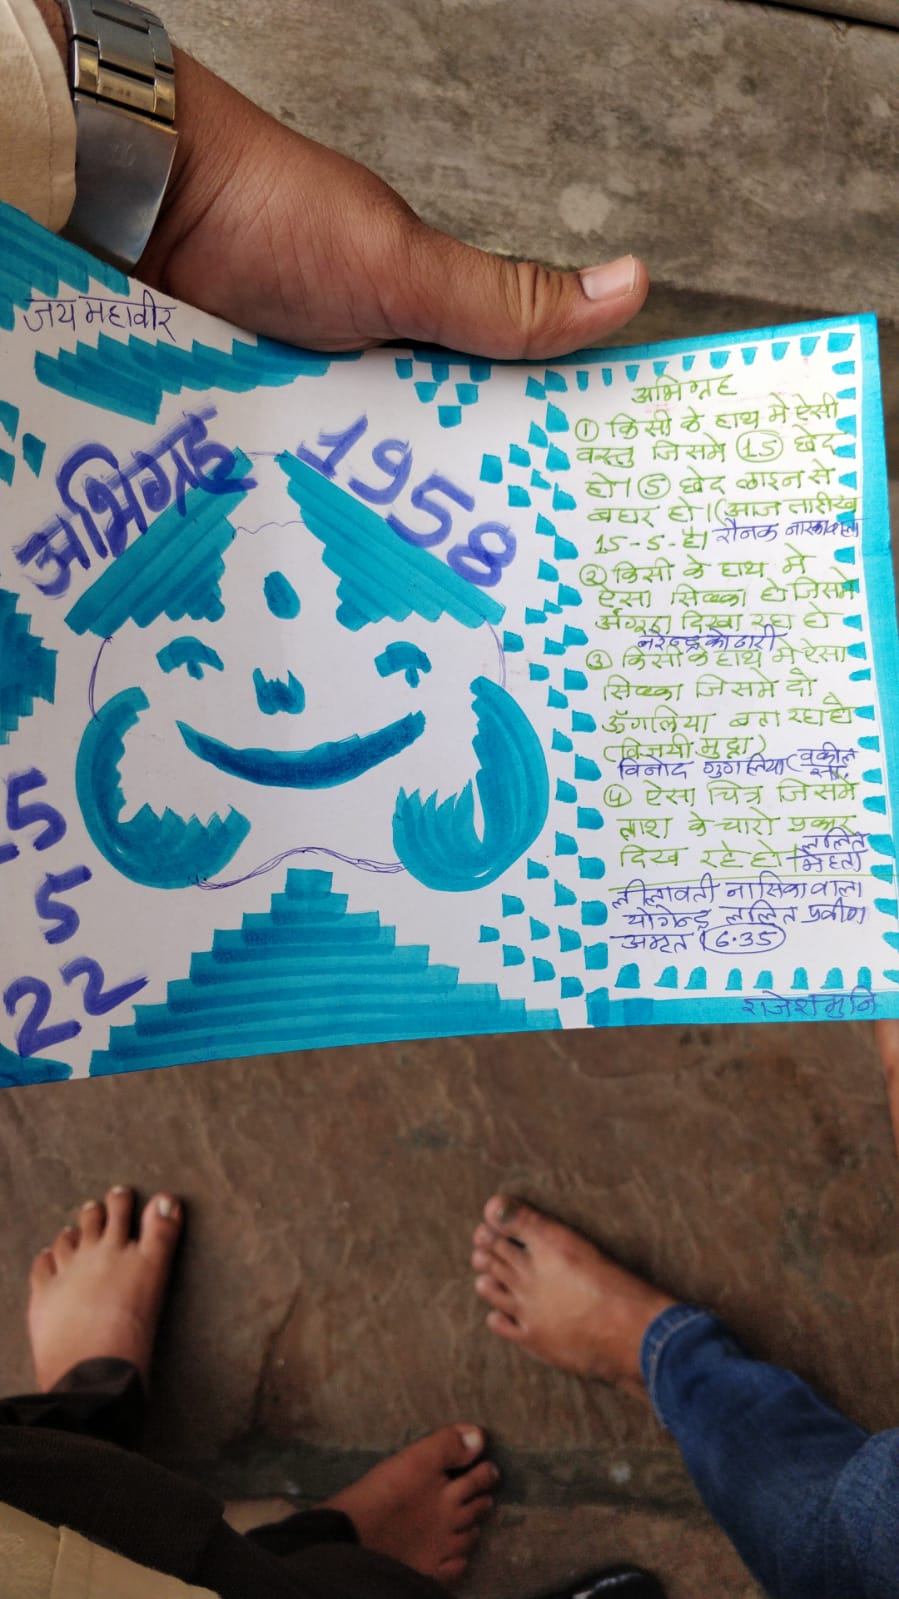 जय महावीर
अभिग्रह 1958
15
5
22
अभिग्रह
① किसी के हाथ में ऐसी
वस्तु जिसमे (15) छेद
हो। (5) छेद लाइन से
बहार हो। (आज तारीख
15-5- है। रौनक नास्कावाला
② किसी के हाथ में
ऐसा सिक्का हो जिसमे
अँगूठा दिखा रहा हो
नरेन्द्र कोठारी
③ किसी के हाथ में ऐसा
सिक्का जिसमे दो
ऊँगलिया बता रहा हो
(विजयी मुद्रा)
विनोद गुगलिया (वकील सा.
④ ऐसा चित्र जिसमे
ताश के चारो प्रकार
दिख रहे हो। ललित मेहता
लीलावती नासिकावाला
योगेन्द्र ललित प्रवीण
अमृत (6.35)
राजेश मुनि